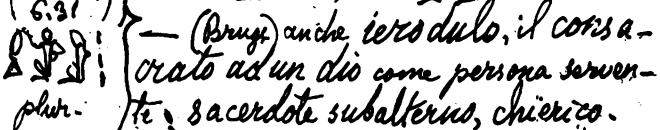 (6,31
} — (Brugs) anche ierodulo, il consa-
crato ad un dio come persona serven-
plur. te, sacerdote subalterno, chierico.